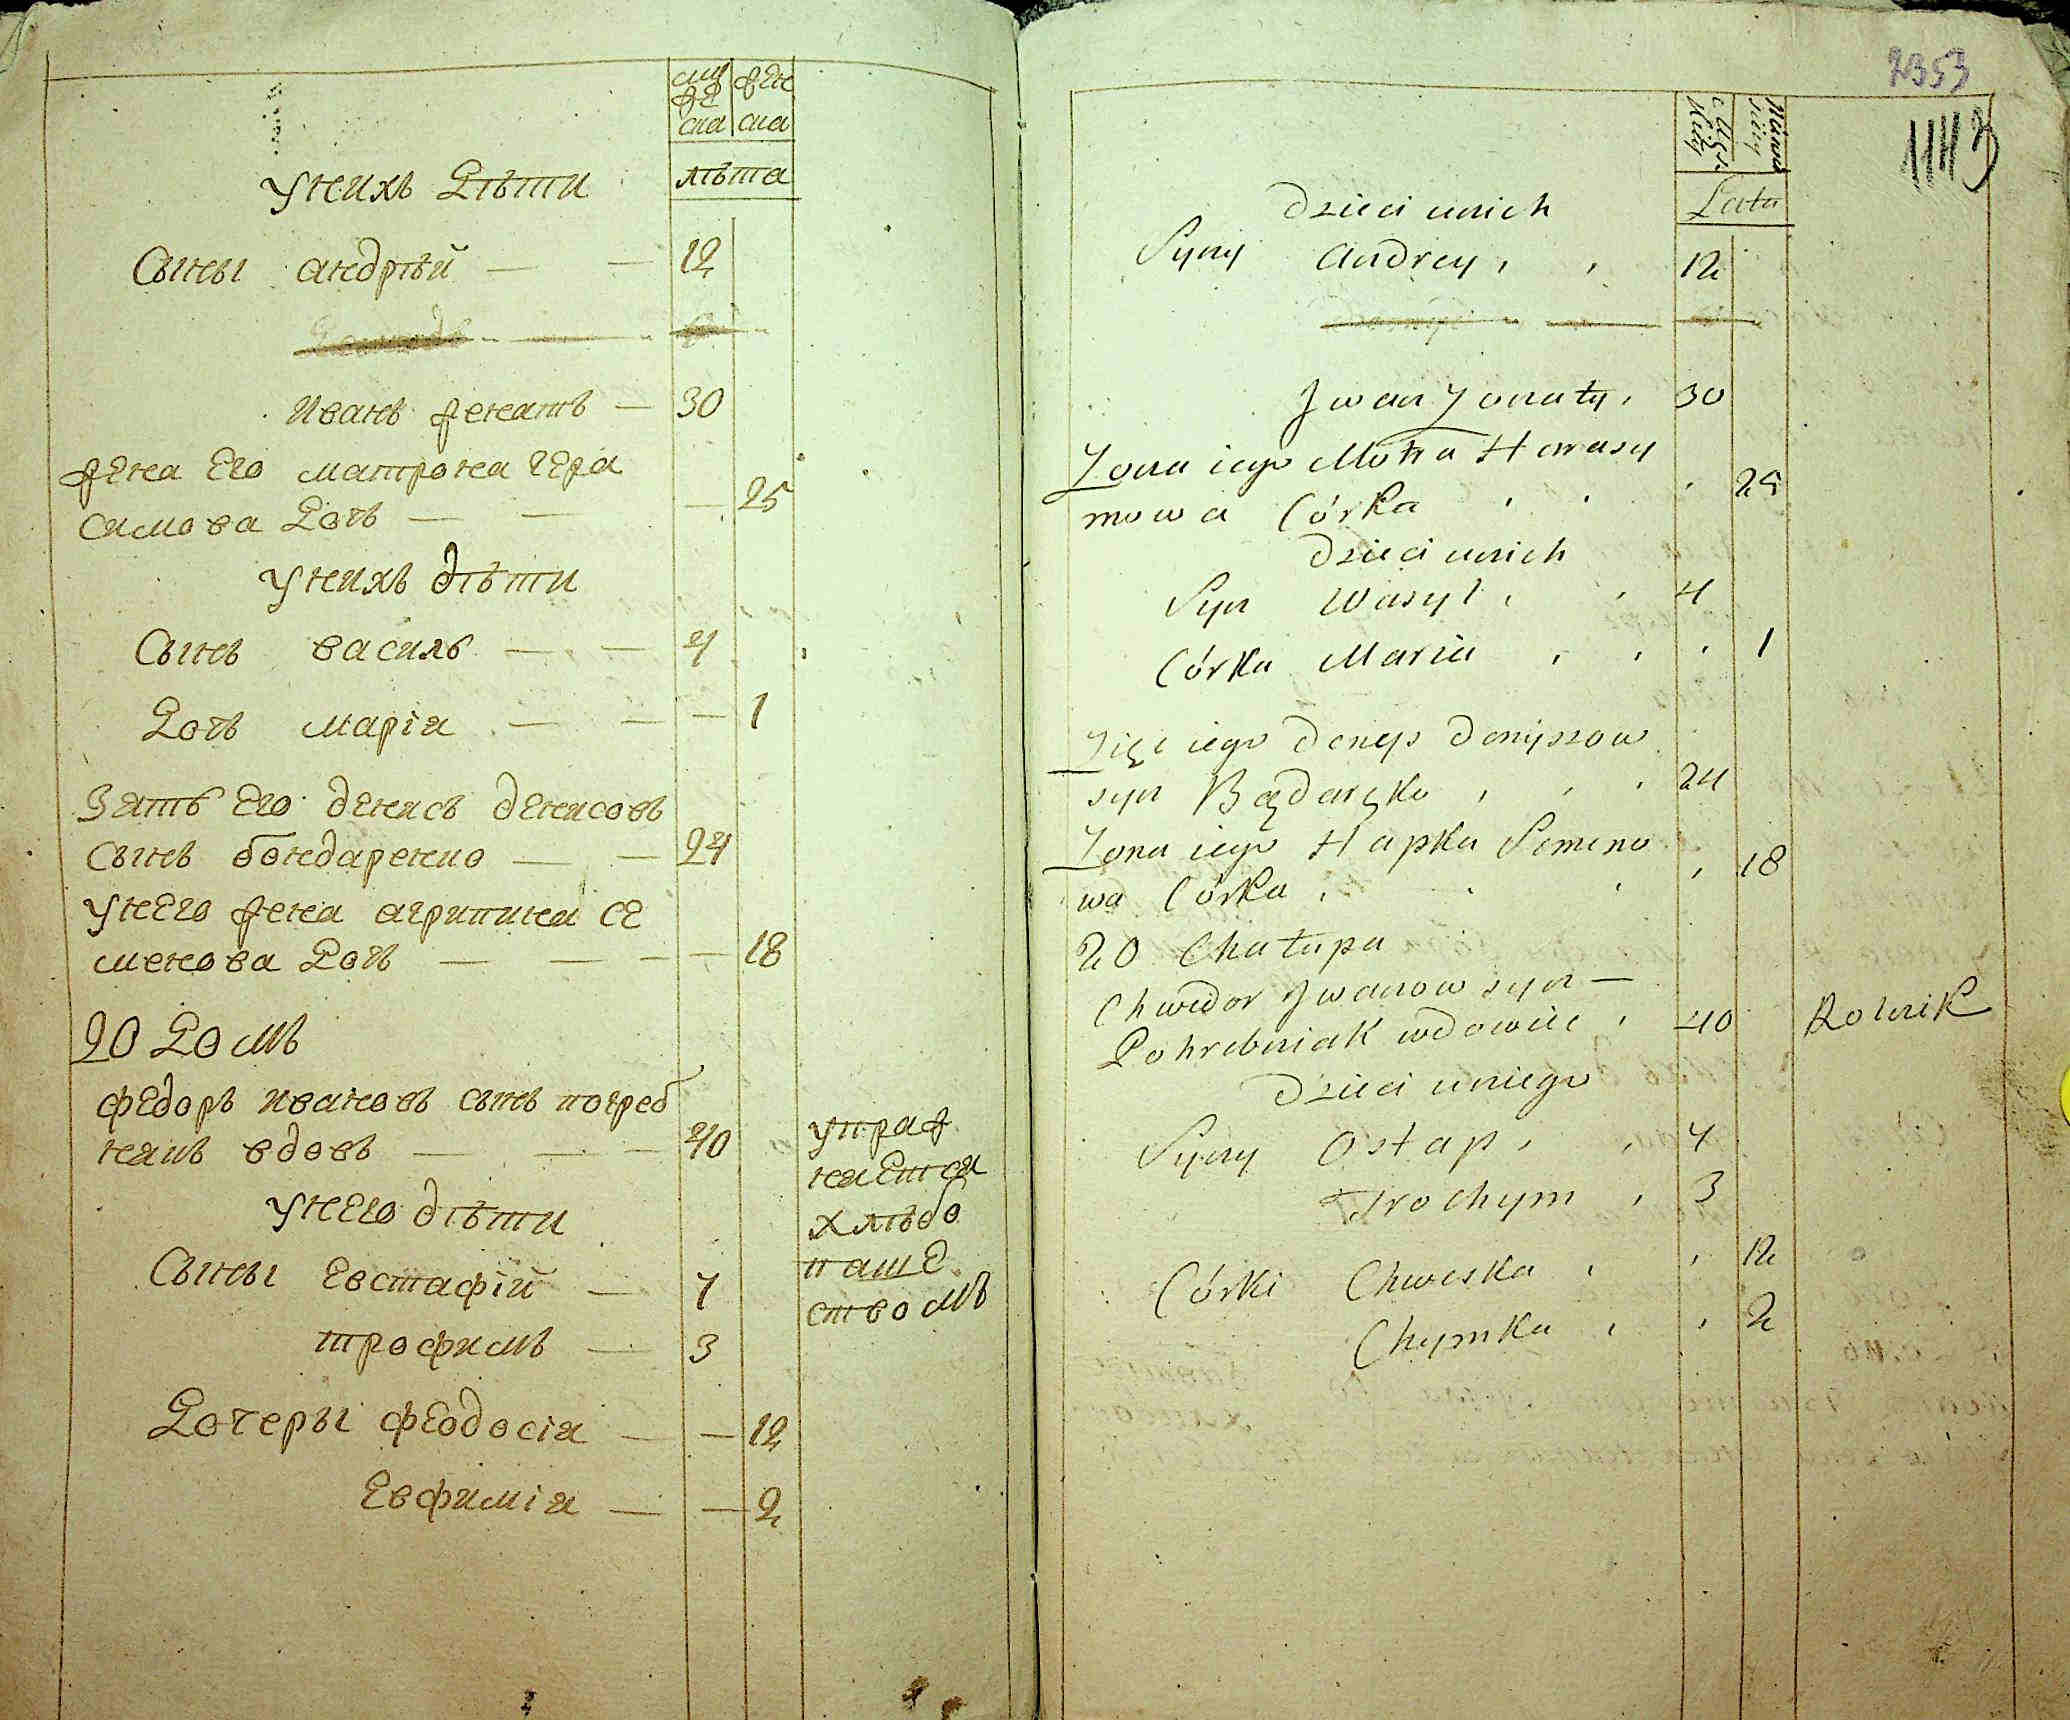 муж
же
ска
жен
ска
лѣта
У нихъ Дѣти
Сыны андрѣй — — 12
Иванъ женатъ — 30
жена Его матрона гера
симова Дочь — — — 25
У нихъ дѣти
Сынъ василь — — 4
Дочь марія — — — 1
Зять Его денисъ денисовъ
сынъ бондаренко — — 24
У него жена агрипина се
менова Дочь — — — — 18
20 Домъ
федоръ ивановъ сынъ погреб
някъ вдовъ — — — 40
упраж
няется
хлѣбо
паше
ствомъ
У него дѣти
Сыны Евстафій — 4
трофимъ — 3
Дочеры феодосія — — 12
Евфимія — — 2
2353
1143
Lata
Dzieci u nich
Syny Andrey 12
Jwan Żonaty 30
Żona iego Motra Harasy
mowa Córka 25
Dzieci u nich
Syn Wasyl 4
Córka Maria 1
Zięć iego Denys Denyszow
syn Bądaręko 24
Żona iego Hapka Semeno
wa Córka 18
20 Chałupa
Chwedor Jwanow syn —
Pohrebniak wdowiec 40 Rolnik
Dzieci u niego
Syny Ostap 4
Trochym 3
Córki Chweska 12
Chymka 2